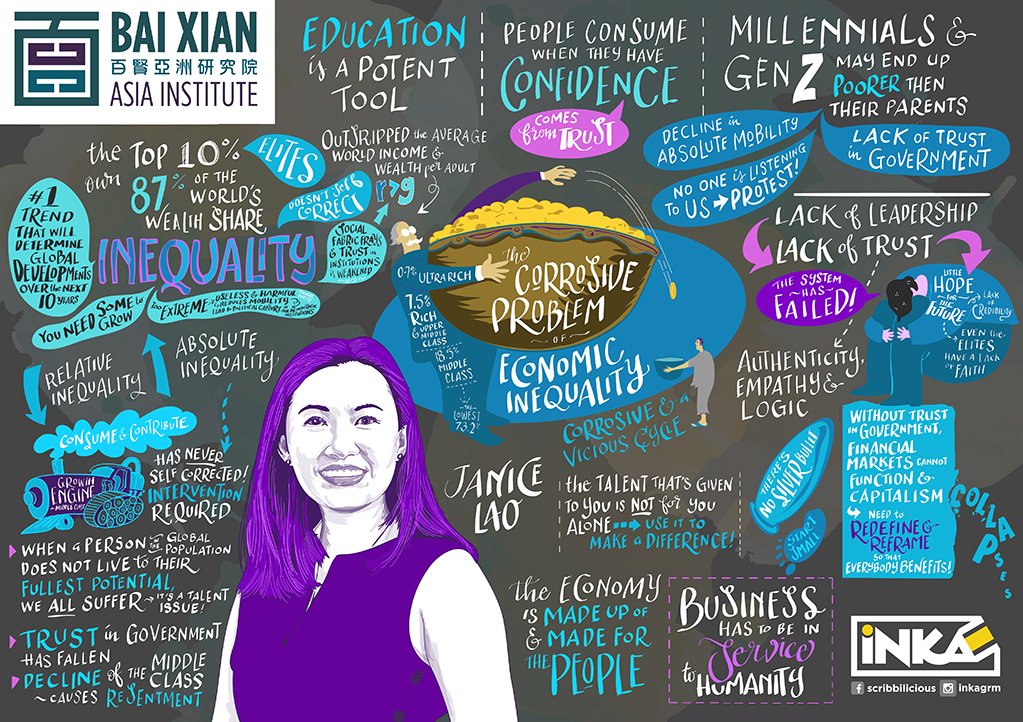 BAI XIAN
百賢亞洲研究院
ASIA INSTITUTE
EDUCATION
is A POTENT
TOOL
PEOPLE CONSUME
WHEN THEY HAVE
CONFIDENCE
COMES
from TRUST
MILLENNIALS &
GEN Z
MAY END UP
POORER THEN
THEIR PARENTS
DECLINE in
ABSOLUTE MOBILITY
LACK of TRUST
in GOVERNMENT
NO ONE is LISTENING
TO US → PROTEST!
the TOP 10%
own 87% OF THE
WORLD'S
WEALTH SHARE
ELITES
OUTSTRIPPED the AVERAGE
WORLD INCOME &
WEALTH for ADULT
r>g
DOESN'T SELF
CORRECT
#1
TREND
THAT WILL
DETERMINE
GLOBAL
DEVELOPMENTS
OVER the NEXT
10 YEARS
INEQUALITY
SOCIAL
FABRIC FRAYS
& TRUST in
INSTITUTIONS
is WEAKEND
YOU NEED SOME to
GROW
too EXTREME
USELESS & HARMFUL
REDUCES MOBILITY &
LEAD to POLITICAL CAPTURE of
INSTITUTIONS
RELATIVE
INEQUALITY
ABSOLUTE
INEQUALITY
CONSUME & CONTRIBUTE
GROWTH
ENGINE
~MIDDLE CLASS
HAS NEVER
SELF CORRECTED!
INTERVENTION
REQUIRED
WHEN a PERSON in the GLOBAL POPULATION
DOES NOT LIVE to THEIR
FULLEST POTENTIAL,
WE ALL SUFFER → IT'S a TALENT
ISSUE!
TRUST in GOVERNMENT
HAS FALLEN
DECLINE of the MIDDLE
CLASS
~ CAUSES RESENTMENT
0.7% ULTRA RICH
7.5%
RICH
& UPPER MIDDLE
CLASS
18.5%
MIDDLE
CLASS
the
LOWEST
73.2%
the
CORROSIVE
PROBLEM
OF
ECONOMIC
INEQUALITY
CORROSIVE & a
VICIOUS CYCLE
JANICE
LAO
the TALENT THAT'S GIVEN
TO YOU is NOT for YOU
ALONE USE IT TO
MAKE A DIFFERENCE!
the ECONOMY
is MADE UP of
& MADE FOR
the PEOPLE
BUSINESS
HAS to BE IN
Service
to HUMANITY
LACK of LEADERSHIP
LACK of TRUST
THE SYSTEM
~HAS~
FAILED!
LITTLE
HOPE
for the
FUTURE
LACK of
CREDIBILITY
EVEN the
ELITES
HAVE A LACK
of FAITH
AUTHENTICITY,
EMPATHY &
LOGIC
THERE'S
NO SILVER bullet
START
SMALL
WITHOUT TRUST
in GOVERNMENT,
FINANCIAL
MARKETS CANNOT
FUNCTION &
CAPITALISM
COLLAPSES
NEED to
REDEFINE &
REFRAME
SO THAT
EVERYBODY BENEFITS!
iNKA
scribbilicious inkagrm